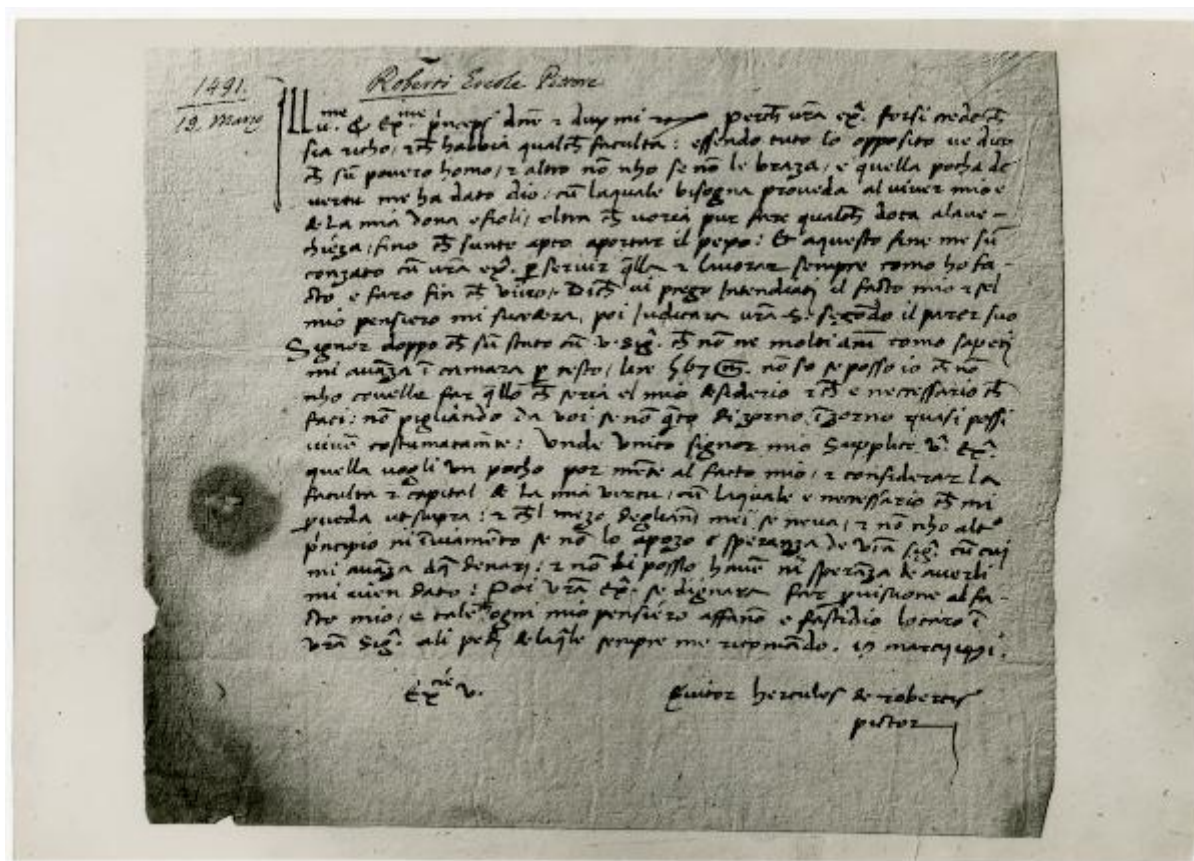 1491. Roberti Ercole Pittore
19. Marzo
Ill.me & Ex.me princeps dne & dux mi perch vra ex. forsi crede ch
sia richo, & ch habbia qualch faculta: essendo tuto lo opposito ve dico
ch su povero homo, & altro no nho se no le braza, e quella pocha de
vertu me ha dato dio, cu laquale bisogna proveda al viver mio e
de la mia dona e fioli, oltra ch voria pur fare qualch dota a la ve-
chieza, fino ch sunte apto aportar il pepo: Et aquesto fine me su
conzato cu vra ex. p servir qlla & lavorar sempre como ho fa-
cto e faro fin ch vivo. Dich vi prego Intendiati il facto mio & sel
mio pensiero mi sucedera, poi Judicara vra S. segodo il parer suo
Signor doppo ch su stato cu v. sig. ch no ne molti ani como sapeti
mi avaza i camara p resto, lire 567 no so se posso io ch no
nho covelle far qllo ch seria el mio desiderio & ch e necessario ch
faci: no pigliando da voi se no qto di zorno i zorno quasi possi
vivere costumatamte: Unde Unico signor mio Supplico V. Ex.
quella vogli un pocho por mete al facto mio, & considerar la
faculta & capital de la mia vertu, cu laquale e necessario ch mi
pveda ut supra: & chl mezo degliani mei se neva, & no nho alto
principio ni iviamento se no lo apozo e speranza de vra sig. cu cui
mi avaza dti denari: & no li posso havere ni speraza de averli
mi vien dato: Poi vra Ex. se dignara far pvisione al fa-
cto mio, e tale ogni mio pensiero affano e fastidio locaro i
vra Sig. ali pedi de laqle sempre me ricomando. 19 marcij 1491.
Ex.cie V. Svitor hercules de robertis
pictor